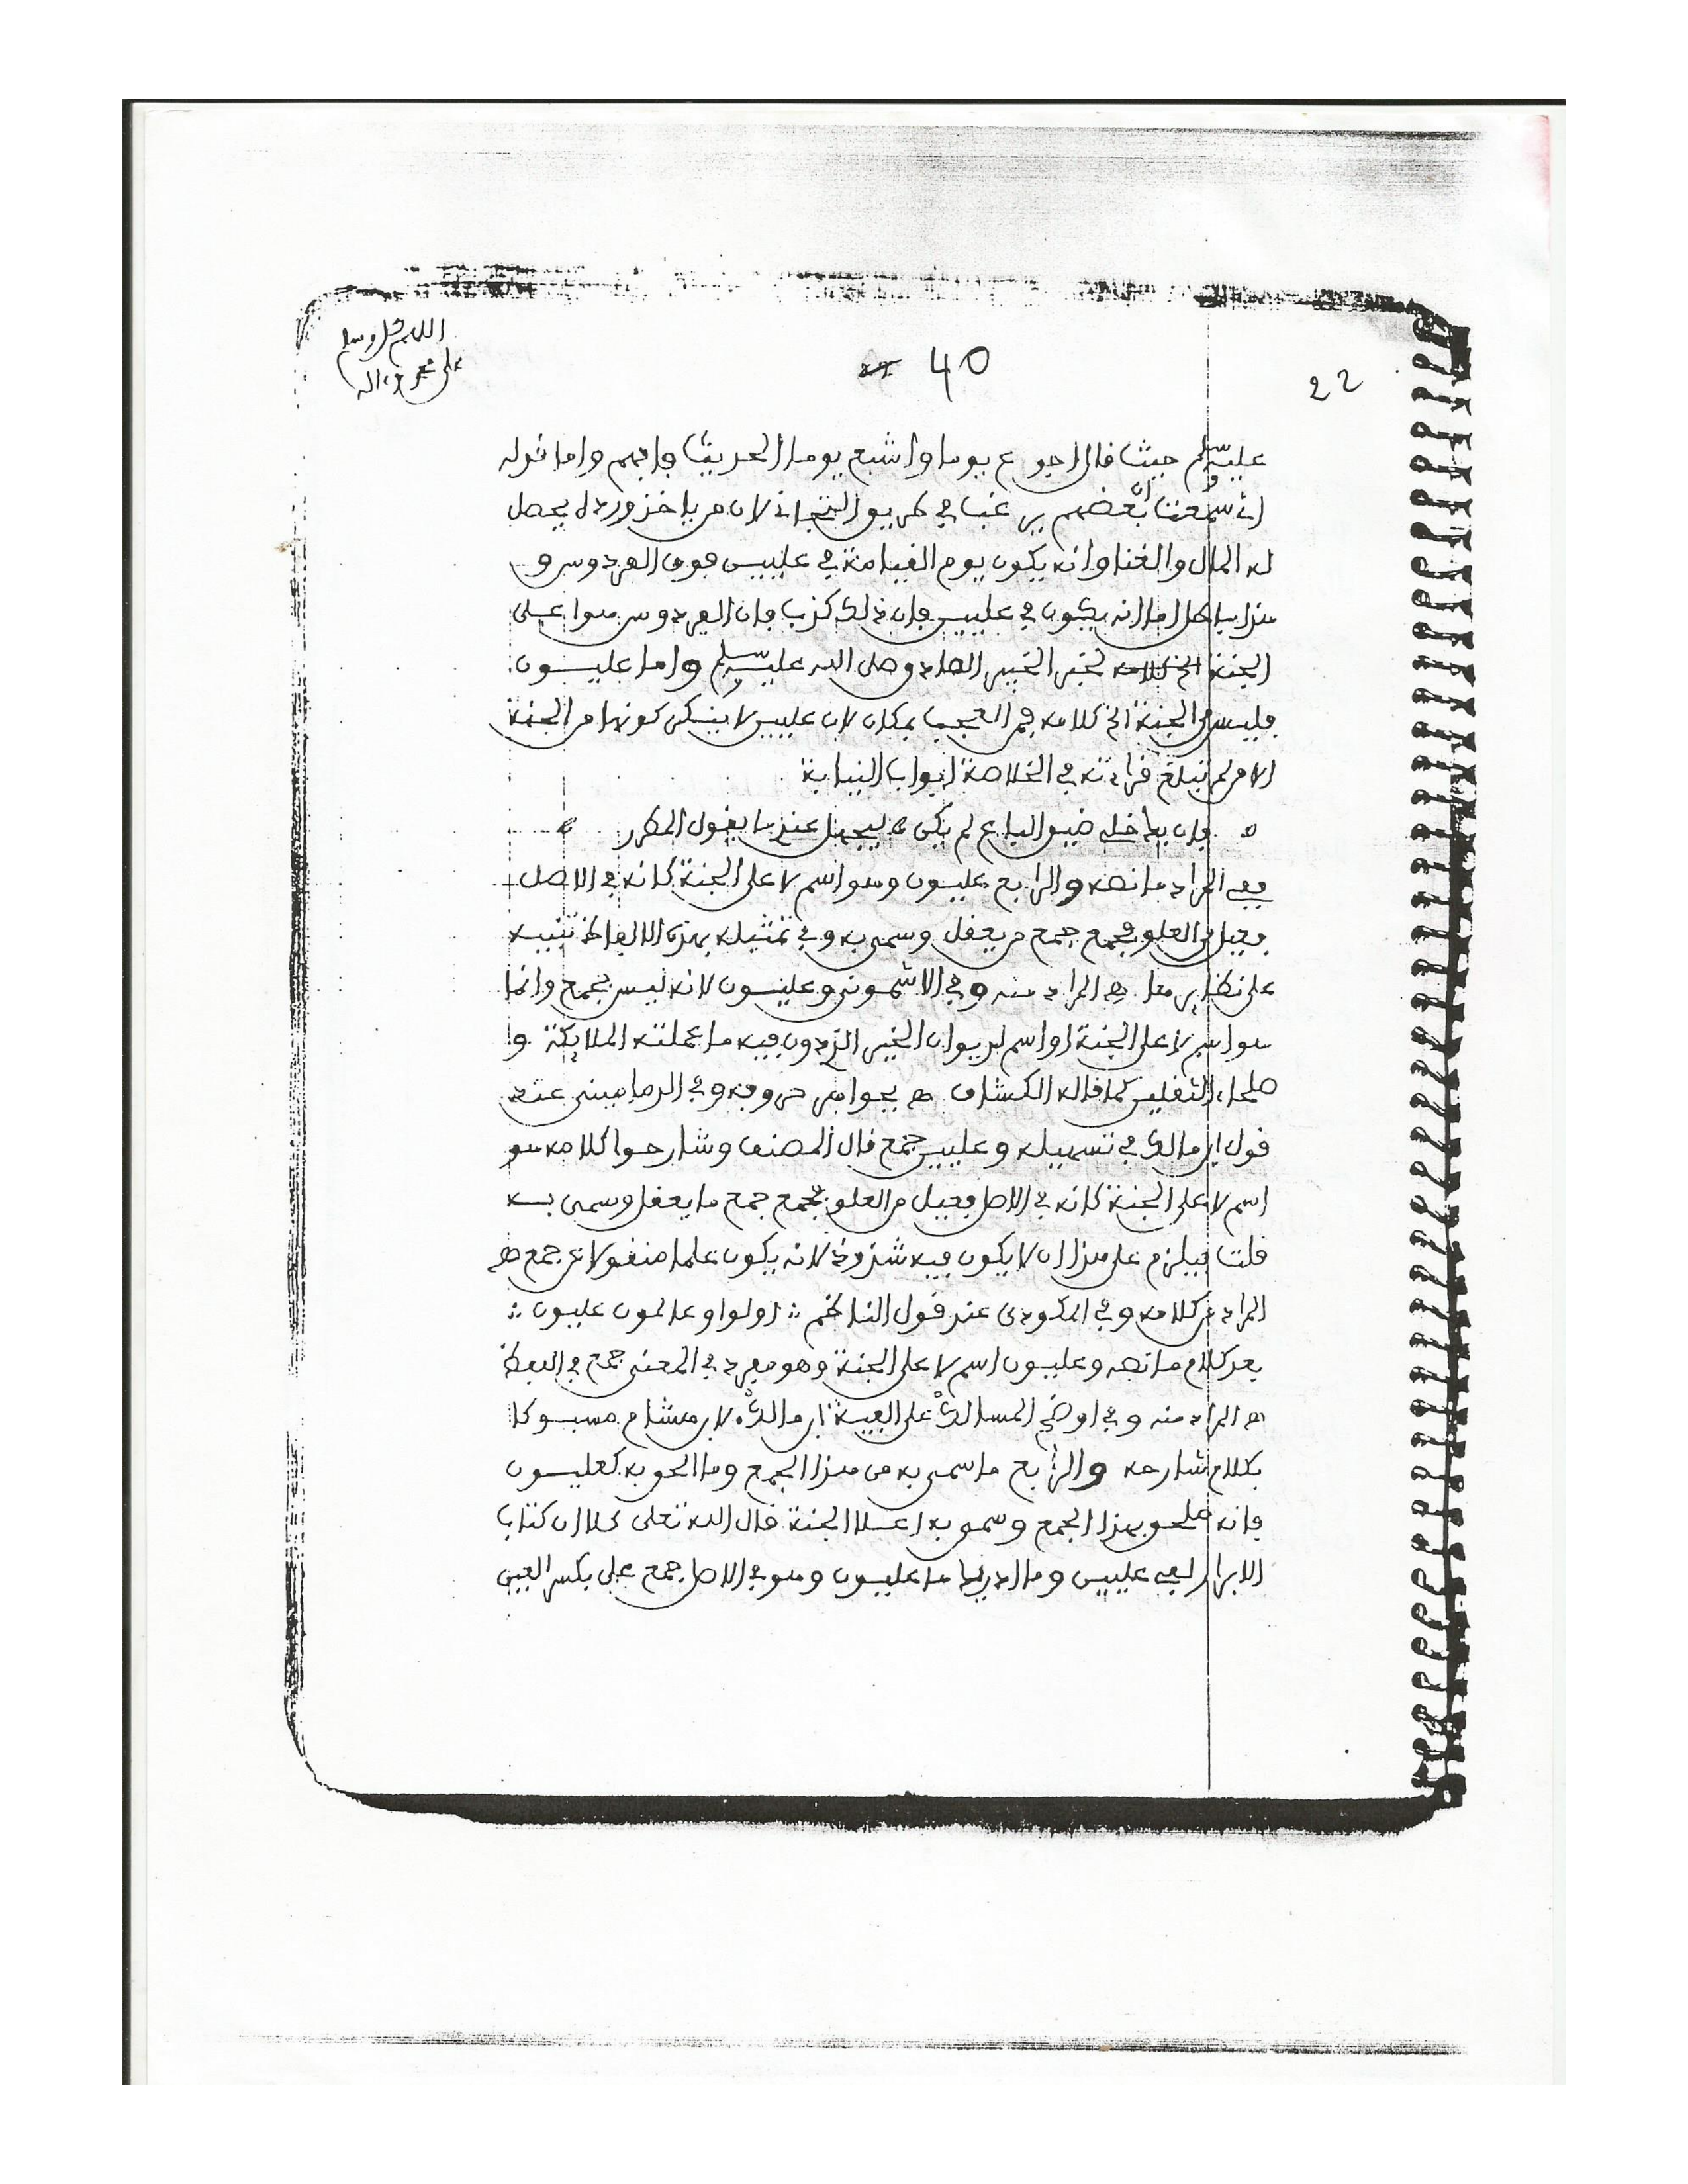 اللهم صل وسلم
على محمد وءاله
40
22
عليه وسلم حيث قال اجوع يوما واشبع يوما الحديث فافهم واما قوله
انى سمعت ان بعضهم يرغب في طريق التجانى لان من ياخذ ورده يحصل
له المال والغنا وانه يكون يوم القيامة في عليين فوق الفردوس و
هذا باطل اما انه يكون في عليين فان ذلك كذب فان الفردوس هوا على
الجنة لخبر الخبير الصادق صلى الله عليه وسلم واما عليون
فليس من الجنة الخ كلامه فمن العجب بمكان لان عليين لا ينكر كونها من الجنة
الا من لم تبلغ قراءته في الخلاصة ابواب النيابة
فان يداخله ضيق الباع لم يكن ليجهل عند ما يقول المطرر
ففي المرادي ما نصه والرابع عليون وهو اسم لاعلى الجنة كانه في الاصل
فعيل من العلو فجمع جمع من يعقل وسمى به وفي تمثيله بهذه الالفاظ تنبيه
على نظايرها هـ المراد منه وفي الاشمونى وعليون لانه ليس بجمع وانما
هو اسم لاعلى الجنة او اسم لديوان الخير الذى دون فيه ما عملته الملايكة و
صلحاء الثقلين كما قاله الكشاف هـ بحوامى حروفه وفي الدمامينى عند
قول ابن مالك في تسهيله وعليين جمع قال المصنف وشارحوا كلامه هو
اسم لاعلى الجنة كانه في الاصل فعيل من العلو فجمع جمع ما يعقل وسمى به
قلت فيلزم على هذا ان لا يكون فيه شذوذ لانه يكون علما منقولا عن جمع هـ
المراد من كلامه وفي المكودى عند قول الناظم : اولوا وعالمون عليون :
بعد كلام ما نصه وعليون اسم لاعلى الجنة وهو مفرد في المعنى جمع في اللفظ
هـ المراد منه وفي اوضح المسالك على الفية ابن مالك لابن هشام مسبوكا
بكلام شارحه والرابع ما سمى به من هذا الجمع وما الحق به كعليون
فانه ملحق بهذا الجمع وسمى به اعلا الجنة قال الله تعلى كلا ان كتاب
الابرار لفي عليين وما ادريك ما عليون وهو في الاصل جمع على بكسر العين